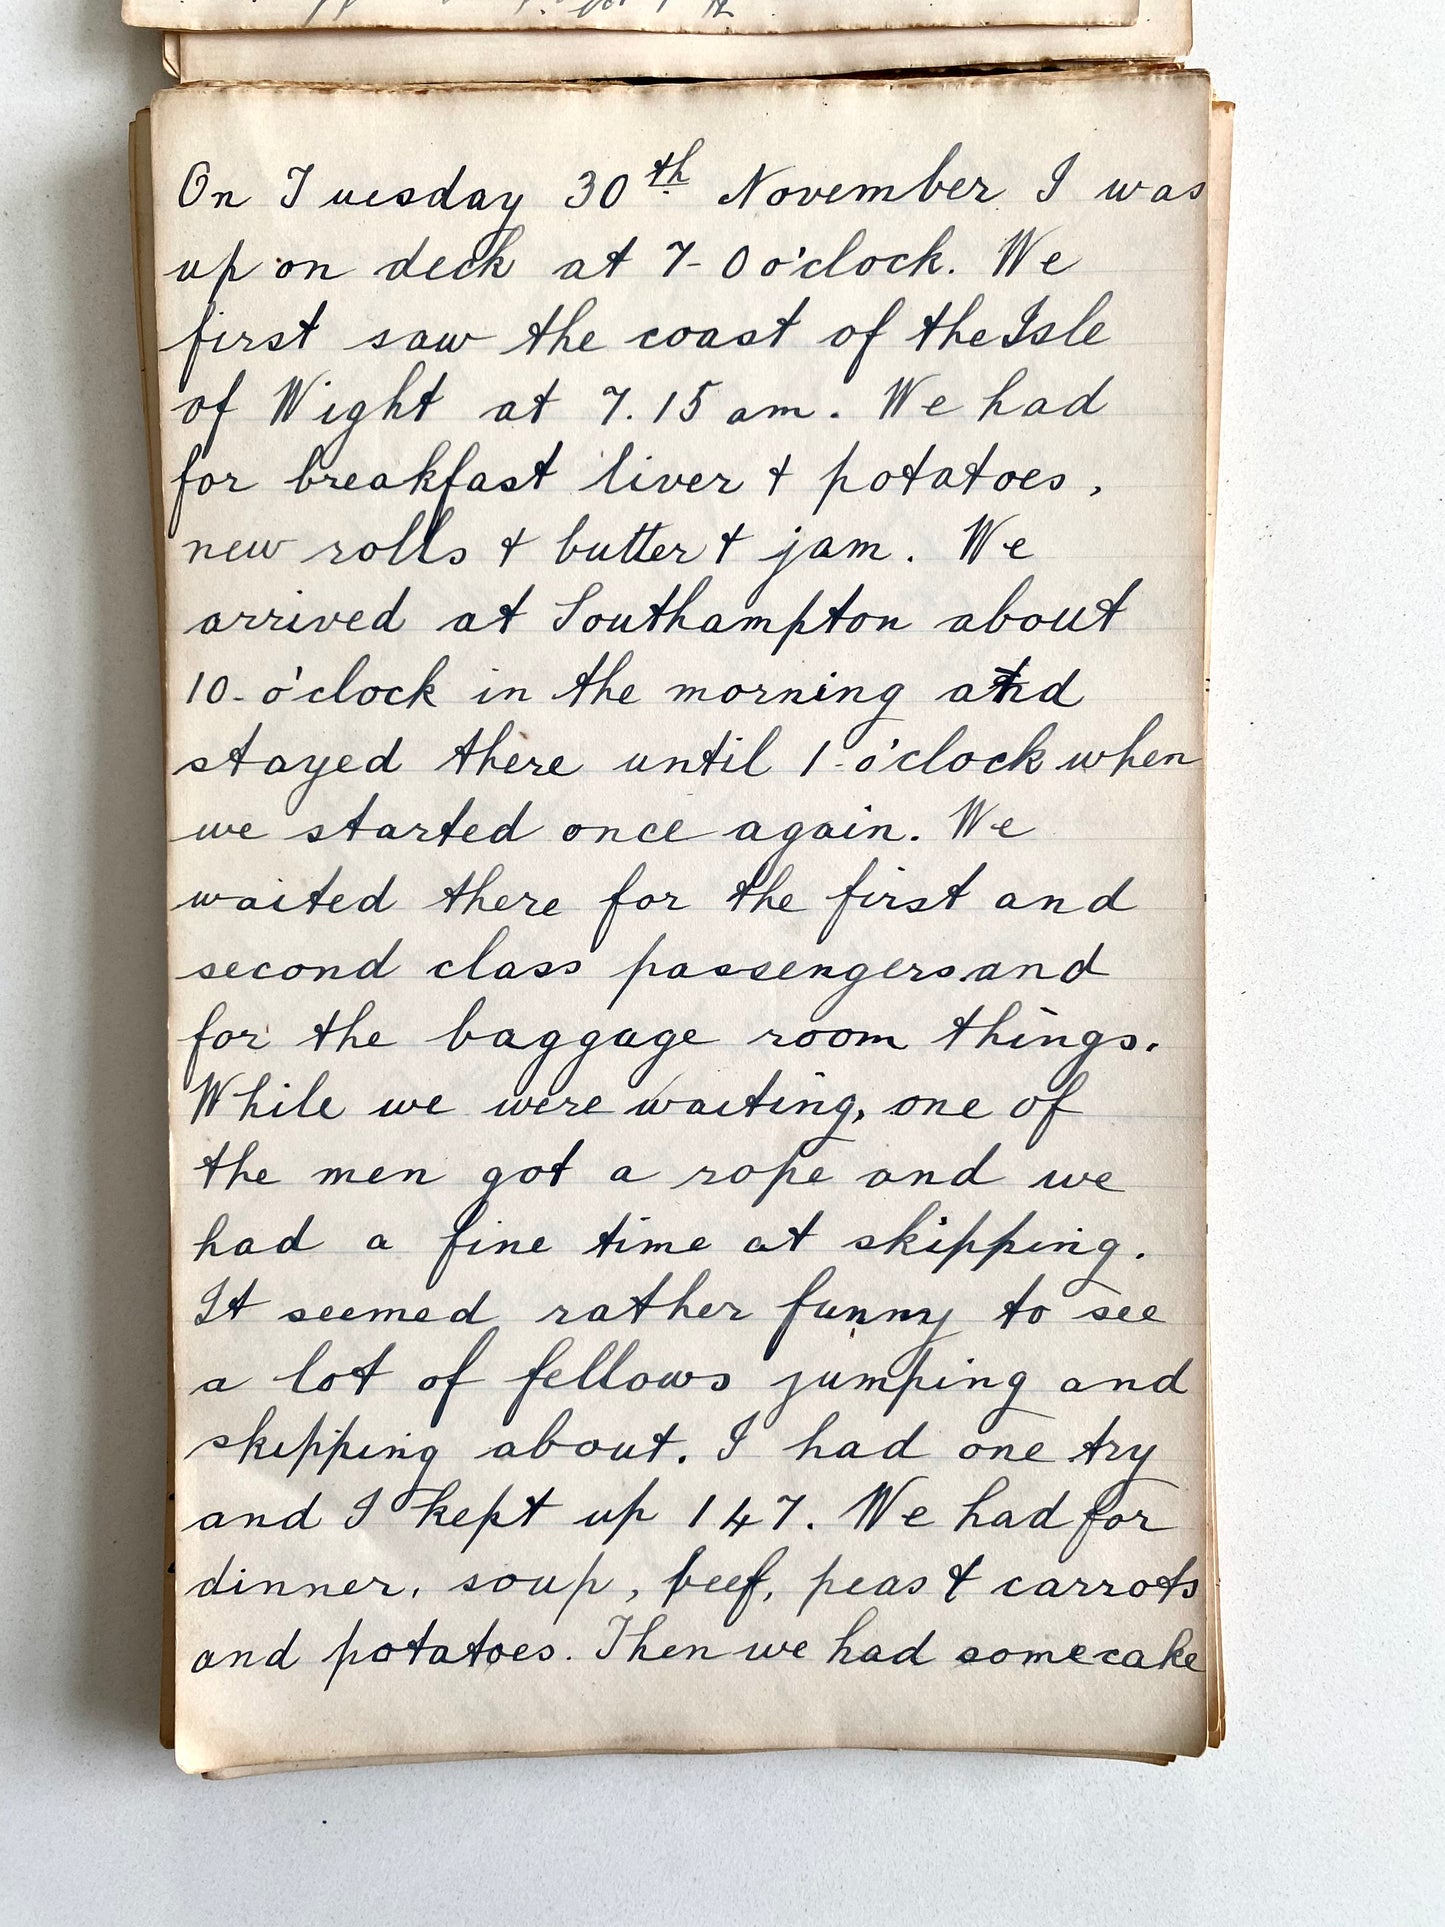 On Tuesday 30th November I was
up on deck at 7-0 o'clock. We
first saw the coast of the Isle
of Wight at 7.15 am. We had
for breakfast liver + potatoes,
new rolls + butter + jam. We
arrived at Southampton about
10- o'clock in the morning and
stayed there until 1- o'clock when
we started once again. We
waited there for the first and
second class passengers and
for the baggage room things.
While we were waiting, one of
the men got a rope and we
had a fine time at skipping.
It seemed rather funny to see
a lot of fellows jumping and
skipping about. I had one try
and I kept up 147. We had for
dinner, soup, beef, peas + carrots
and potatoes. Then we had some cake